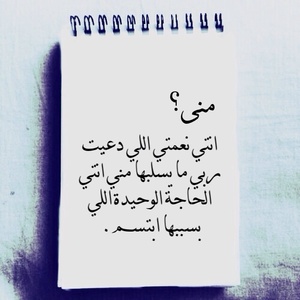 منى؟
انتي نعمتي اللي دعيت
ربي ما يسلبها مني انتي
الحاجة الوحيدة اللي
بسببها ابتسم .